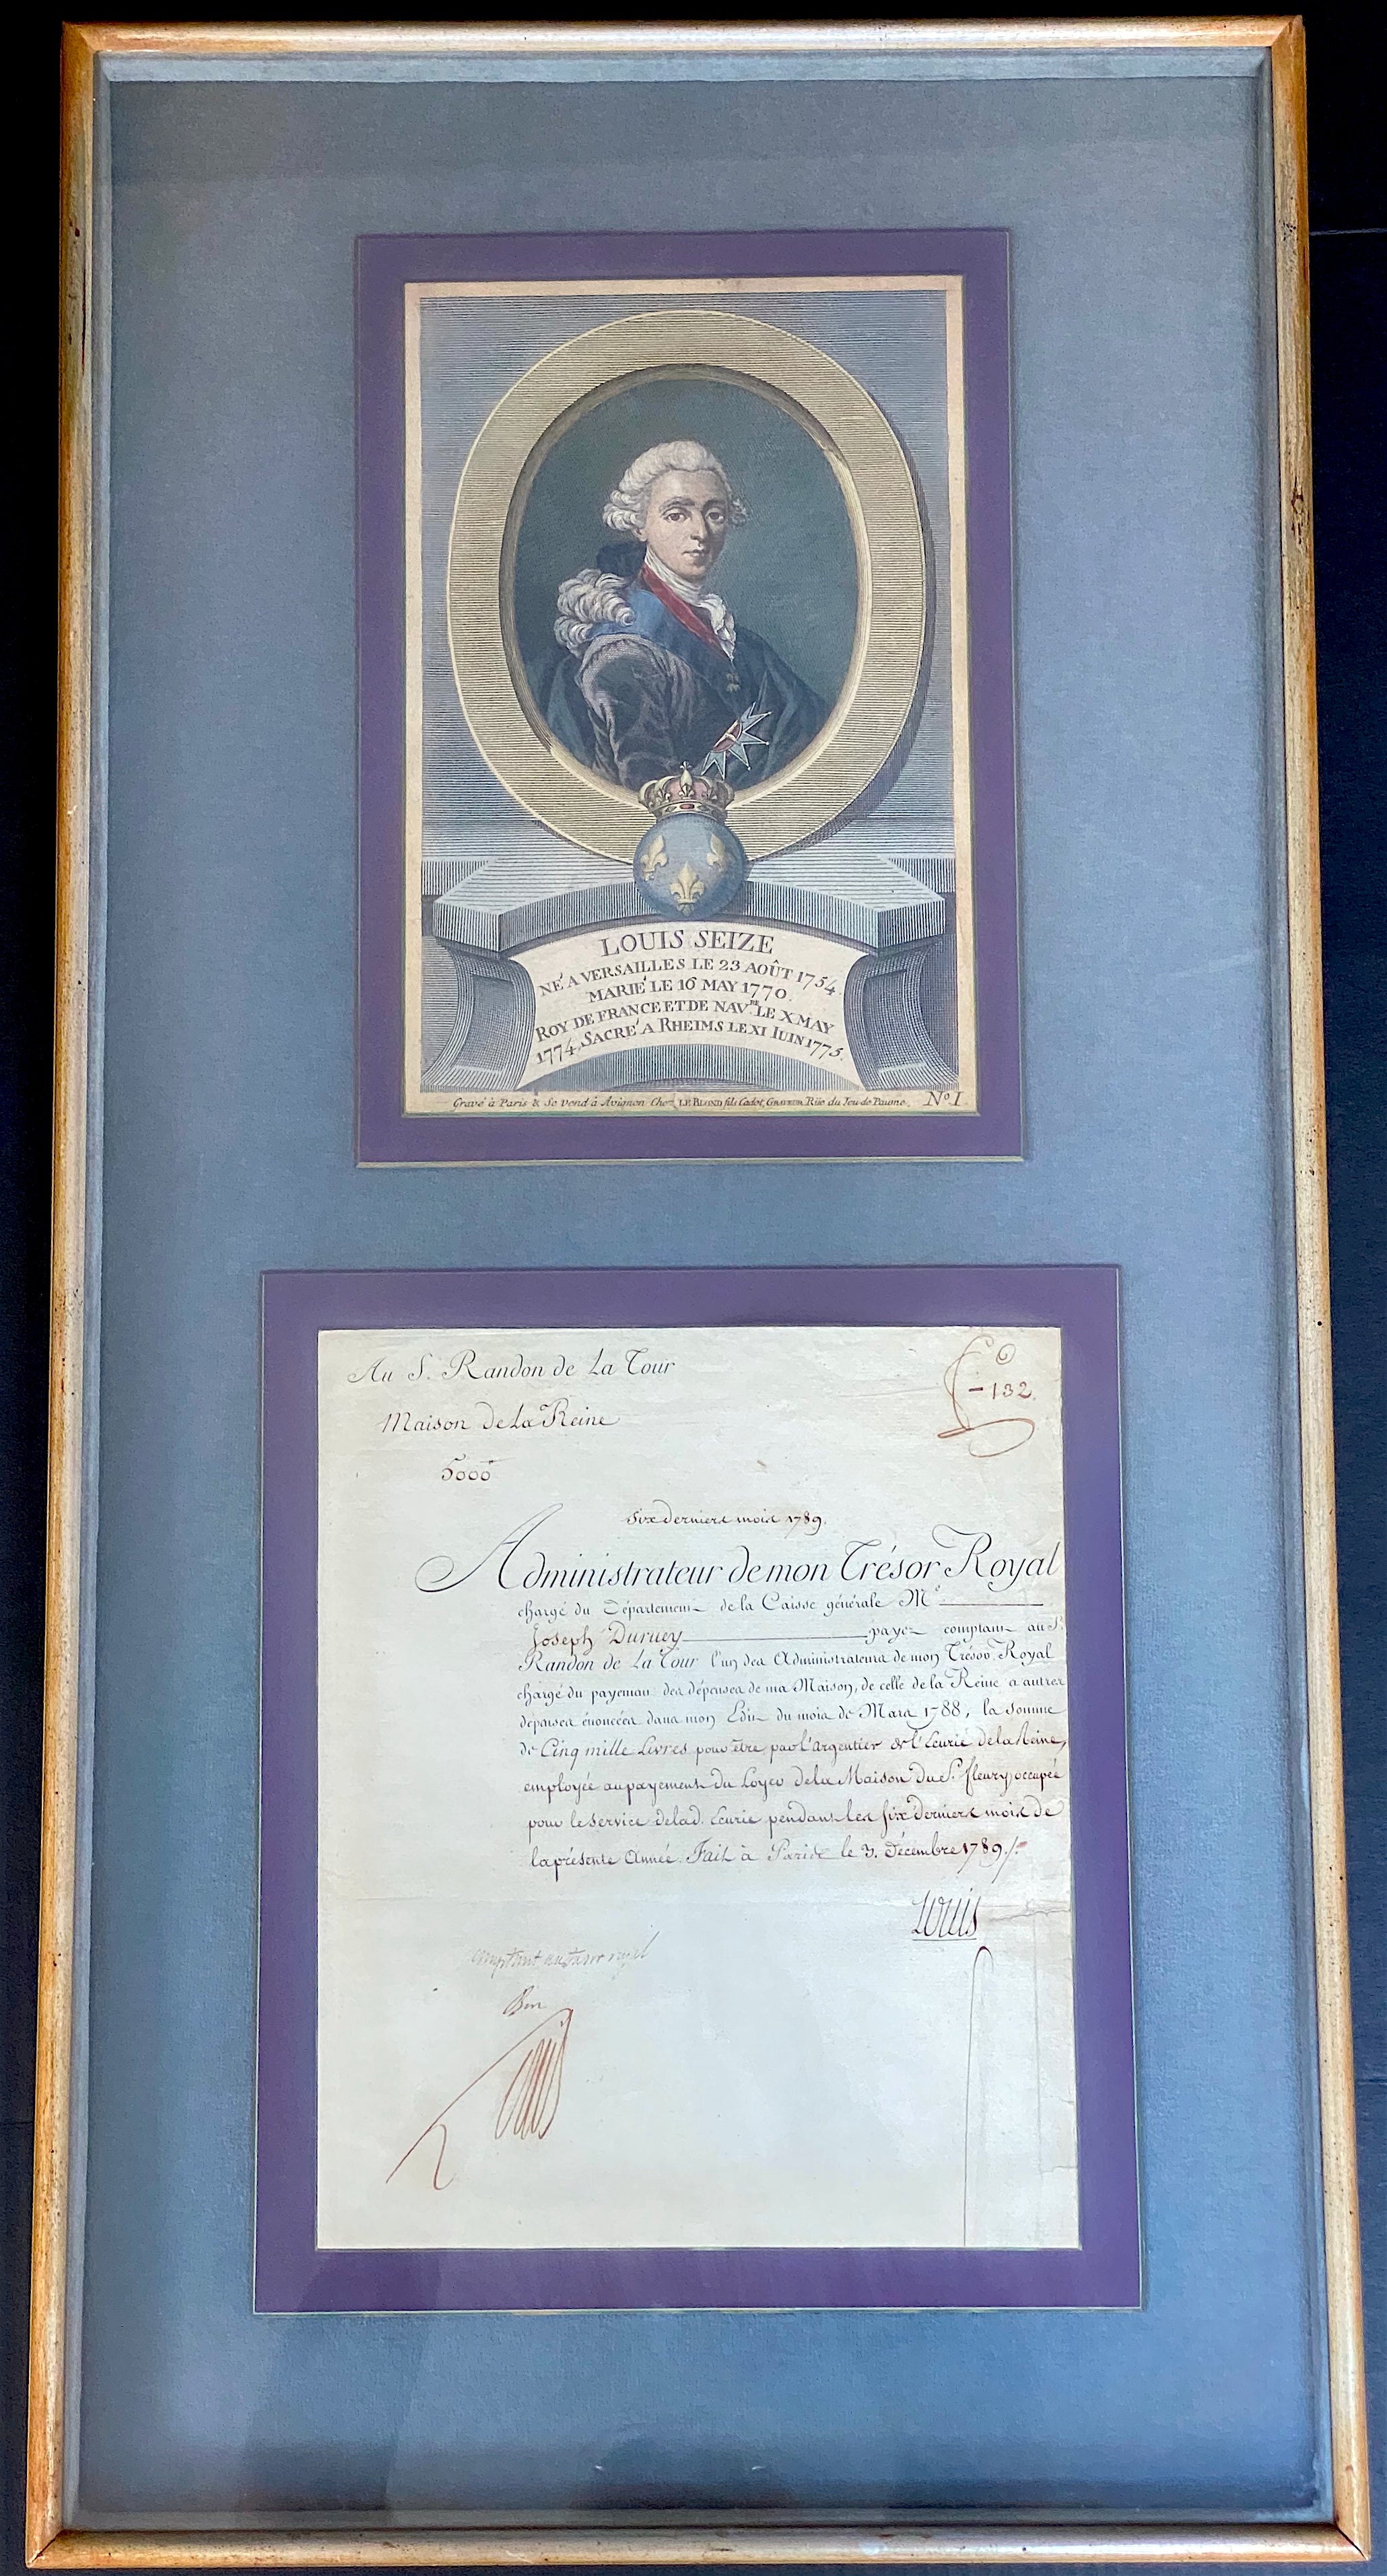 LOUIS SEIZE
NÉ A VERSAILLES LE 23 AOÛT 1754.
MARIÉ LE 16 MAY 1770.
ROY DE FRANCE ET DE NAV.RE LE X MAY
1774, SACRÉ A RHEIMS LE XI IUIN 1775.
Gravé à Paris & se vend à Avignon Chez LE BLOND fils Cadet, GRAVEUR Rüe du Jeu de Paume. No. I.
Au S. Randon de La Tour
132.
Maison de La Reine
5000
Six derniers mois 1789.
Administrateur de mon Trésor Royal
chargé du Département de la Caisse générale Me
Joseph Duruey payez comptant au S.
Randon de La Tour l'un des Administrateurs de mon Trésor Royal
chargé du payement des dépenses de ma Maison, de celle de la Reine & autres
dépenses énoncées dans mon Edit du mois de Mars 1788, la somme
de Cinq mille Livres pour être par l'argentier de l'Ecurie de la Reine,
employée au payement du Loyer de la Maison du S. fleury occupée
pour le service de lad. Ecurie pendant les six derniers mois de
la présente Année. Fait à Paris le 3. Décembre 1789./.
Louis
comptant au tresor royal
Bon
Louis